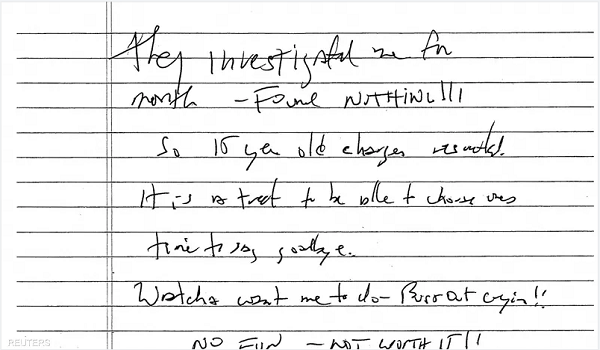 They investigated me for
month — Found NOTHING!!!
So 15 year old charges
It is a treat to be able to choose ones
time to say goodbye.
Watcha want me to do — Burst out cryin!!
NO FUN — NOT WORTH IT!!
REUTERS